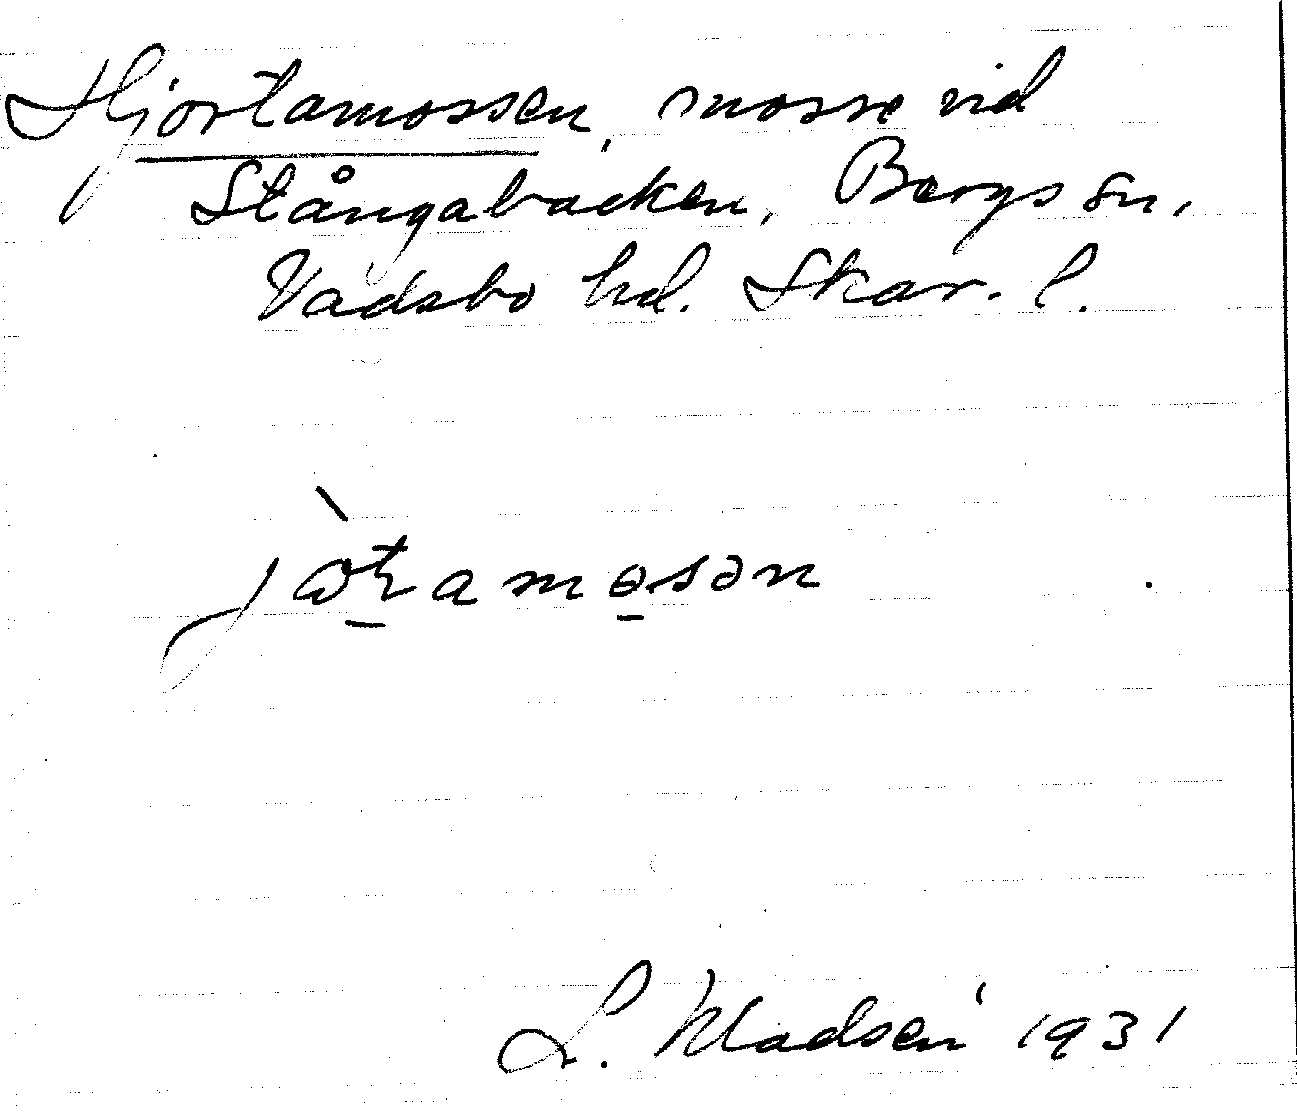 Hjortamossen, mosse vid
Stångabacken, Bergs sn,
Vadsbo hd. Skar. l.
L. Madsén 1931